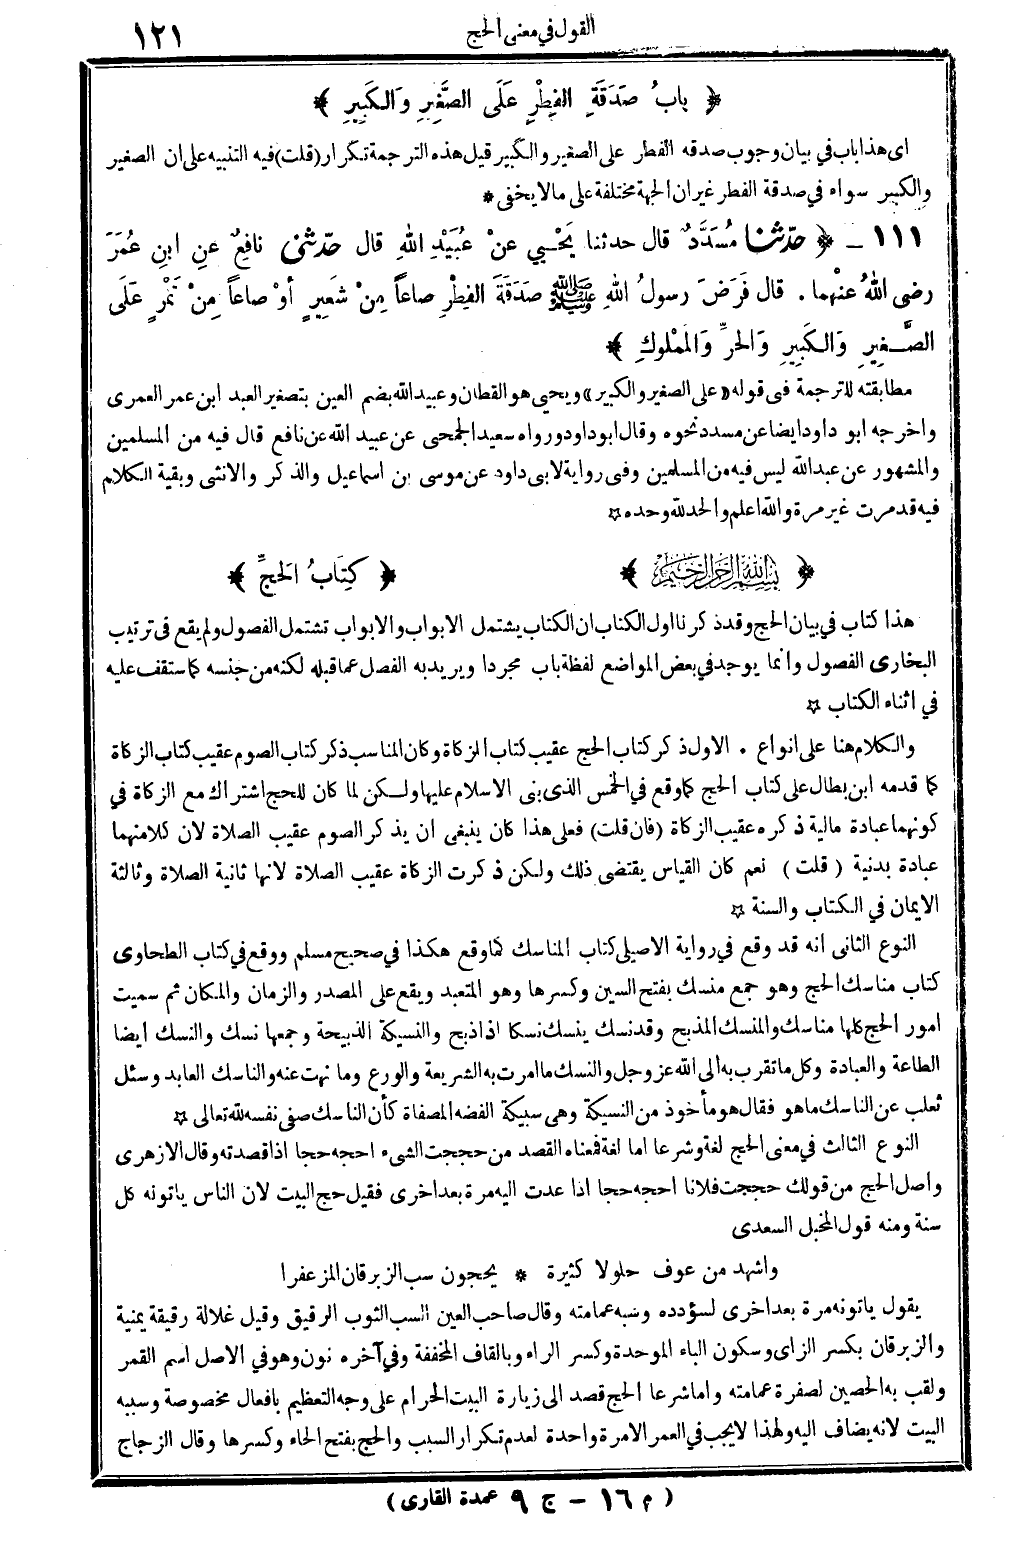 القول في معنى الحج
١٢١
﴿ بابُ صَدَقَةِ الفِطْرِ عَلَى الصَّغِيرِ وَالكَبِيرِ ﴾
اى هذا باب في بيان وجوب صدقه الفطر على الصغير والكبير قيل هذه الترجمة تكرار (قلت) فيه التنبيه على ان الصغير
والكبير سواء في صدقة الفطر غير ان الجهة مختلفة على ما لا يخفى *
١١١ ـ ﴿ حدّثنا مُسَدَّدٌ قال حدثنا يَحْيي عنْ عُبَيْدِ اللهِ قال حدّثنى نافِعٌ عنِ ابنِ عُمَرَ
رضى اللهُ عنْهما . قال فَرَضَ رسولُ اللهِ ﷺ صَدَقَةَ الفِطْرِ صاعاً مِنْ شَعِيرٍ أوْ صاعاً مِنْ تَمْرٍ عَلَى
الصَّغِيرِ وَالكَبِيرِ وَالحرِّ وَالمَمْلوكِ ﴾
مطابقته للترجمة فى قوله «على الصغير والكبير» ويحيى هو القطان وعبيد الله بضم العين بتصغير العبد ابن عمر العمرى
واخرجه ابو داود ايضا عن مسدد نحوه وقال ابو داود ورواه سعيد الجمحى عن عبيد الله عن نافع قال فيه من المسلمين
والمشهور عن عبدالله ليس فيه من المسلمين وفى رواية لابى داود عن موسى بن اسماعيل والذكر والانثى وبقية الكلام
فيه قد مرت غير مرة والله اعلم والحمد لله وحده ☆
﴿ بسم الله الرحمن الرحيم ﴾ ﴿ كِتَابُ الحَجِّ ﴾
هذا كتاب في بيان الحج وقد ذكرنا اول الكتاب ان الكتاب يشتمل الابواب والابواب تشتمل الفصول ولم يقع فى ترتيب
البخارى الفصول وانما يوجد في بعض المواضع لفظة باب مجردا ويريد به الفصل عما قبله لكنه من جنسه كما ستقف عليه
في اثناء الكتاب ☆
والكلام هنا على انواع . الاول ذكر كتاب الحج عقيب كتاب الزكاة وكان المناسب ذكر كتاب الصوم عقيب كتاب الزكاة
كما قدمه ابن بطال على كتاب الحج كما وقع في الخمس الذى بنى الاسلام عليها ولكن لما كان للحج اشتراك مع الزكاة في
كونهما عبادة مالية ذكره عقيب الزكاة (فان قلت) فعلى هذا كان ينبغى ان يذكر الصوم عقيب الصلاة لان كلا منهما
عبادة بدنية ( قلت ) نعم كان القياس يقتضى ذلك ولكن ذكرت الزكاة عقيب الصلاة لانها ثانية الصلاة وثالثة
الايمان في الكتاب والسنة ☆
النوع الثانى انه قد وقع في رواية الاصيلى كتاب المناسك كما وقع هكذا في صحيح مسلم ووقع في كتاب الطحاوى
كتاب مناسك الحج وهو جمع منسك بفتح السين وكسرها وهو المتعبد ويقع على المصدر والزمان والمكان ثم سميت
امور الحج كلها مناسك والمنسك المذبح وقد نسك ينسك نسكا اذا ذبح والنسيكة الذبيحة وجمعها نسك والنسك ايضا
الطاعة والعبادة وكل ما تقرب به الى الله عز وجل والنسك ما امرت به الشريعة والورع وما نهت عنه والناسك العابد وسئل
ثعلب عن الناسك ما هو فقال هو مأخوذ من النسيكة وهى سبيكة الفضه المصفاة كأن الناسك صفى نفسه لله تعالى ☆
النوع الثالث في معنى الحج لغة وشرعا اما لغة فمعناه القصد من حججت الشىء احجه حجا اذا قصدته وقال الازهرى
واصل الحج من قولك حججت فلانا احجه حجا اذا عدت اليه مرة بعد اخرى فقيل حج البيت لان الناس ياتونه كل
سنة ومنه قول المخبل السعدى
واشهد من عوف حلولا كثيرة * يحجون سب الزبرقان المزعفرا
يقول ياتونه مرة بعد اخرى لسؤدده وسبه عمامته وقال صاحب العين السب الثوب الرقيق وقيل غلالة رقيقة يمنية
والزبرقان بكسر الزاى وسكون الباء الموحدة وكسر الراء وبالقاف المخففة وفي آخره نون وهو في الاصل اسم القمر
ولقب به الحصين لصفرة عمامته واما شرعا الحج قصد الى زيارة البيت الحرام على وجه التعظيم بافعال مخصوصة وسببه
البيت لانه يضاف اليه ولهذا لا يجب في العمر الا مرة واحدة لعدم تكرار السبب والحج بفتح الحاء وكسرها وقال الزجاج
( م ١٦ - ج ٩ عمدة القارى )